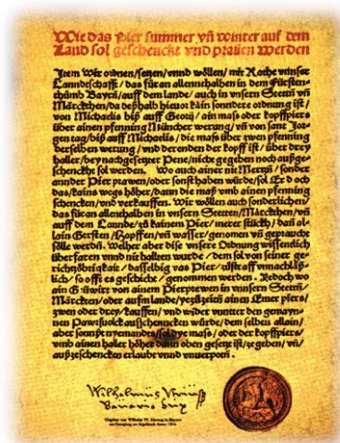 Wie das Pier summer vñ winter auf dem
Land sol geschenckt vnd prauen werden
Item Wir ordnen/setzen/vnnd wöllen/mit Rathe vnnser
Lanndtschafft/das für an allennthalben in dem Fürsten-
thůmb Bayrn/auff dem lande/auch in vnsern Stettn vñ
Märckthen/da deßhalb hieuor kain sonndere ordnung ist/
von Michaelis biß auff Georij/ain mass oder kopffpiers
über ainen pfenning Müncher werung/vñ von sant Jor-
gen tag/biß auff Michaelis/die mass über zwen pfenning
derselben werung/vnd derenden der kopff ist/über drey
haller/bey nachgesetzter Pene/nicht gegeben noch außge-
schenckht sol werden. Wo auch ainer nit Mertzn/sonder
annder Pier prawen/oder sonsthaben würde/sol Er d och
das/kains wegs höher/dann die maß vmb ainen pfenning
schencken/vnd verkauffen. Wir wöllen auch sonderlichen/
das füran allenthalben in vnsern Stetten/Märckthen/vñ
auff dem Lannde/zů kainem Pier/merer stückh/dañ al-
lain Gersten/Hopffen/vñ wasser/genomen vñ gepraucht
sölle werdñ. Welher aber dise vnsere Ordnung wissendlich
überfaren vnnd nit hallten wurde/dem sol von seiner ge-
richtzöbrigkait/dasselbig vas Pier/zůstraff vnnachläß-
lich/so offt es geschicht/genommen werden. Yedoch wo
ain Gůwirt von ainem Pierprewen in vnnsern Stettñ/
Märckten/oder aufm lande/yezůzeitñ ainen Emer piers/
zwen oder drey/kauffen/vnd wider vnnter den gemayn-
nen Pawrsuolck ausschencken würde/dem selben allain/
aber sonnsst nyemandes/sol dye mass/oder der kopffpiers/
vmb ainen haller höher dann oben gesetzt ist/ze geben/vñ/
außzeschencken erlaubt vnnd vnuerpotñ.
Wilhelm IV. Herzog in Bayern